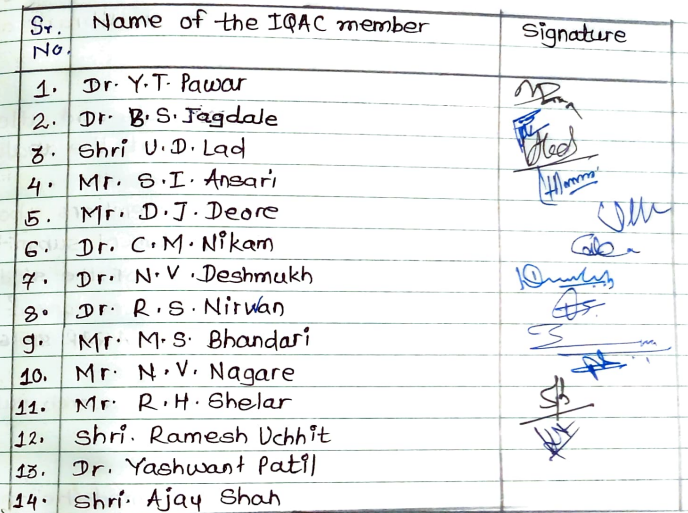 Sr. No. Name of the IQAC member Signature
1. Dr. Y.T. Pawar
2. Dr. B.S. Jagdale
3. Shri U.D. Lad
4. Mr. S.I. Ansari
5. Mr. D.J. Deore
6. Dr. C.M. Nikam
7. Dr. N.V. Deshmukh
8. Dr. R.S. Nirwan
9. Mr. M.S. Bhandari
10. Mr. N.V. Nagare
11. Mr. R.H. Shelar
12. Shri. Ramesh Uchhit
13. Dr. Yashwant Patil
14. Shri. Ajay Shah